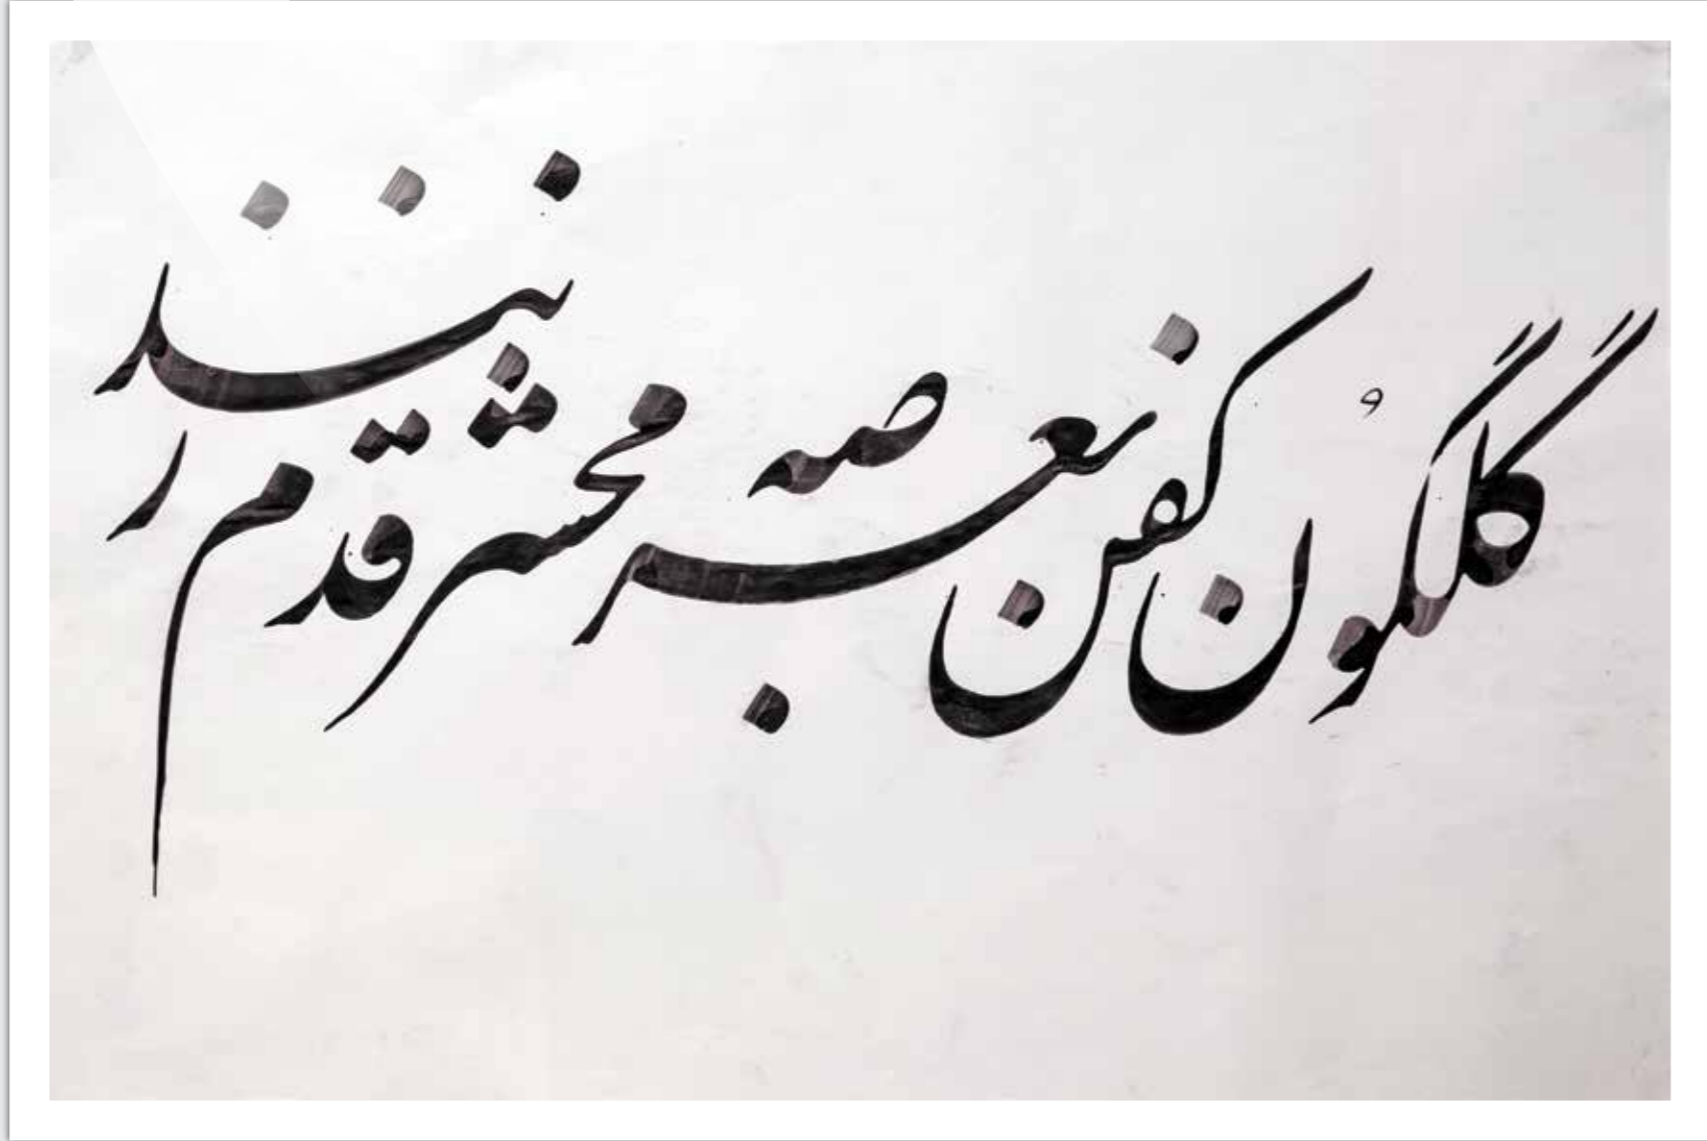 گلگون کفن بعرصه محشر قدم زنند